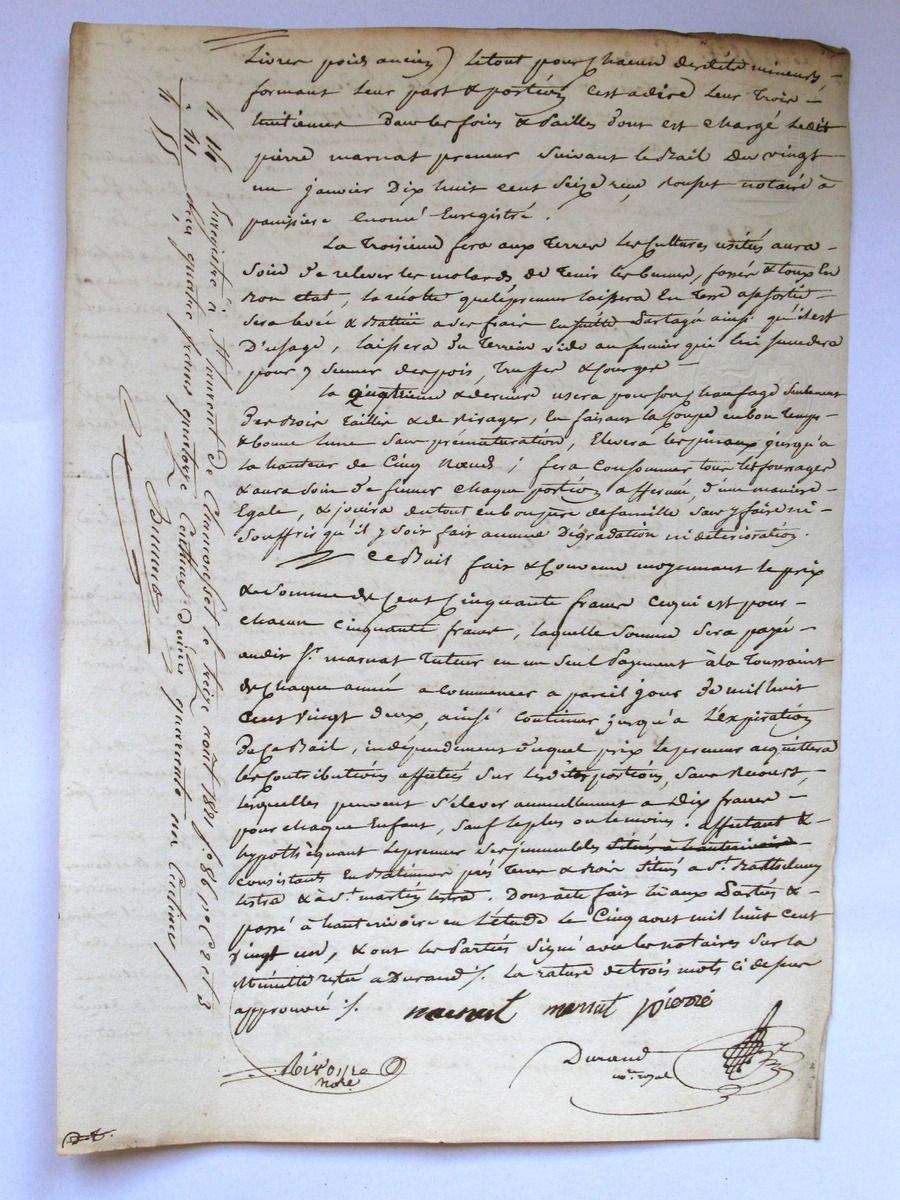 Livres poids ancien) le tout pour chacun desdits mineurs
formant leur part & portion c'est a dire leur trois
huitiemes dans les foins & pailles dont est chargé ledit
pierre marnat preneur suivant le Bail du vingt
un janvier Dix huit cent seize reçu notaire à
panissiere Enregistré.
La Troisieme fera aux Terres les Cultures usitées aura
soin de relever les de tenir les fossés & toux En
bon etat, la récolte que le preneur laissera En Terre
sera levée & Battüe a ses frais Ensuite Partagée ainsi qu'il est
D'usage, laissera du Terrein vide au fermier qui lui succedera
pour y semer des pois, Truffes & Courges
La Quatrieme & derniere usera pour son Chaufage seulement
Des Bois Taillis & de En faisant la Coupe en bon Temps
& bonne lune sans Elevera les jusqu'a
la hauteur de Cinq Nœuds; fera Consommer tous les fourrages
& aura soin de fumer chaque portion affermée, d'une maniere
Egale, & jouira du tout en bon pere de famille sans y faire ni
Souffrir qu'il y soit fait aucune Dégradation ni deterioration.
Ce Bail fait & Convenu moyennant le prix
& somme de Cent Cinquante francs Ce qui est pour
chacun Cinquante francs, laquelle somme sera payée
audit Sr. marnat Tuteur en un seul Payement à la Toussaint
de Chaque année a Commencer a pareil jour de mil huit
Cent vingt deux, ainsi Continuer jusqu'a l'Expiration
De Ce Bail, indépendamment duquel prix le preneur acquittera
les Contributions affectées sur lesdites portions, sans Recours,
lesquelles peuvent s'élever annuellement a Dix francs
pour chaque Enfant, sauf le plus ou le moins; affectant &
hypothéquant le preneur ses immeubles
consistants En Batiments prés Terres & Bois situés a St. Barthelemy
lestra & à St. martin lestra. Dont acte fait lu aux Parties &
passé à hauterivoire en l'étude le Cinq aout mil huit cent
vingt un, & ont les Parties signé avec les notaires sur la
Minutte restée a Durand /. La rature de trois mots ci dessus
approuvée /.
marnat marnat pierre
Durand
nre. royal
notre
Enregistré à St. Laurent de Chamousset le treize août 1821 fo. 86 ro. C. 2 et 3
reçu quatre francs quatorze Centimes dixieme quarante un Centimes